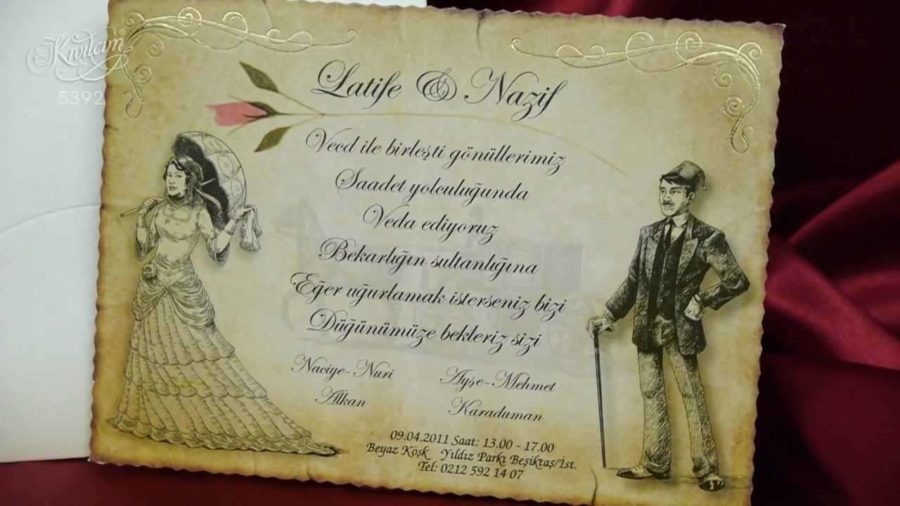 Kıvılcım
5392
Latife & Nazif
Vecd ile birleşti gönüllerimiz
Saadet yolculuğunda
Veda ediyoruz
Bekarlığın sultanlığına
Eğer uğurlamak isterseniz bizi
Düğünümüze bekleriz sizi
Naciye-Nuri
Alkan
Ayşe-Mehmet
Karaduman
09.04.2011 Saat: 13.00 - 17.00
Beyaz Köşk Yıldız Parkı Beşiktaş/İst.
Tel: 0212 592 14 07